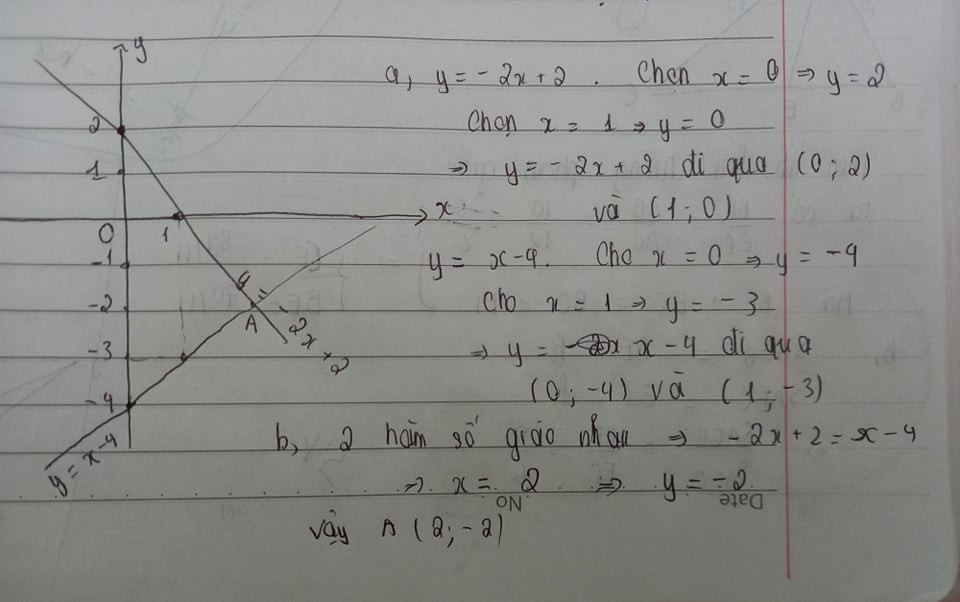 y
a, y = - 2x + 2 . Chọn x = 0 ⇒ y = 2
2
Chọn x = 1 ⇒ y = 0
1
⇒ y = - 2x + 2 đi qua (0 ; 2)
x
và (1 ; 0)
0 1
y = x-4. Cho x = 0 ⇒ y = -4
-1
Cho x = 1 ⇒ y = - 3
-2
A
y = -2x+2
⇒ y = x - 4 đi qua
-3
(0 ; -4) và (1 ; -3)
-4
y = x-4
b, 2 hàm số giao nhau ⇒ - 2x + 2 = x - 4
⇒ x = 2 ⇒ y = - 2
No
Date
vậy A (2; -2)